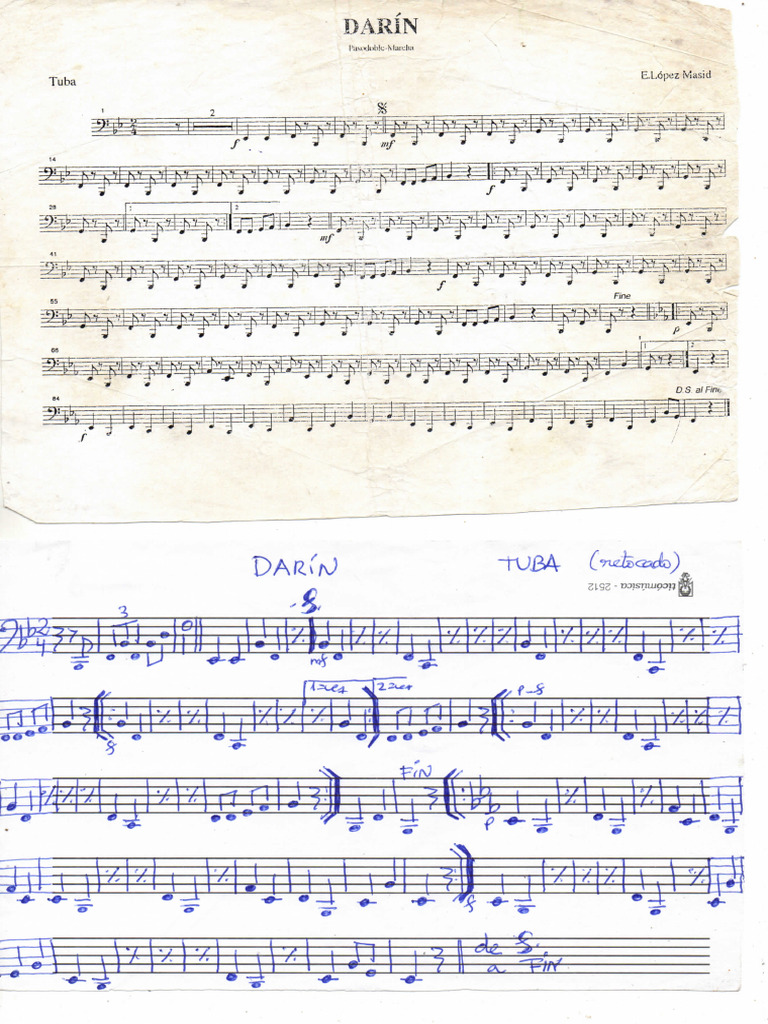 DARÍN
Pasodoble-Marcha
Tuba
E.López Masid
1
2
f
mf
14
f
28
1.
2.
mf
41
f
55
Fine
p
66
1.
2.
84
D.S. al Fine
f
DARÍN TUBA (retocado)
ticómúsica - 2512
3
2
4
mf
1ª vez
2ª vez
p-f
f
FÍN
p
f
de 𝄋
a FÍN